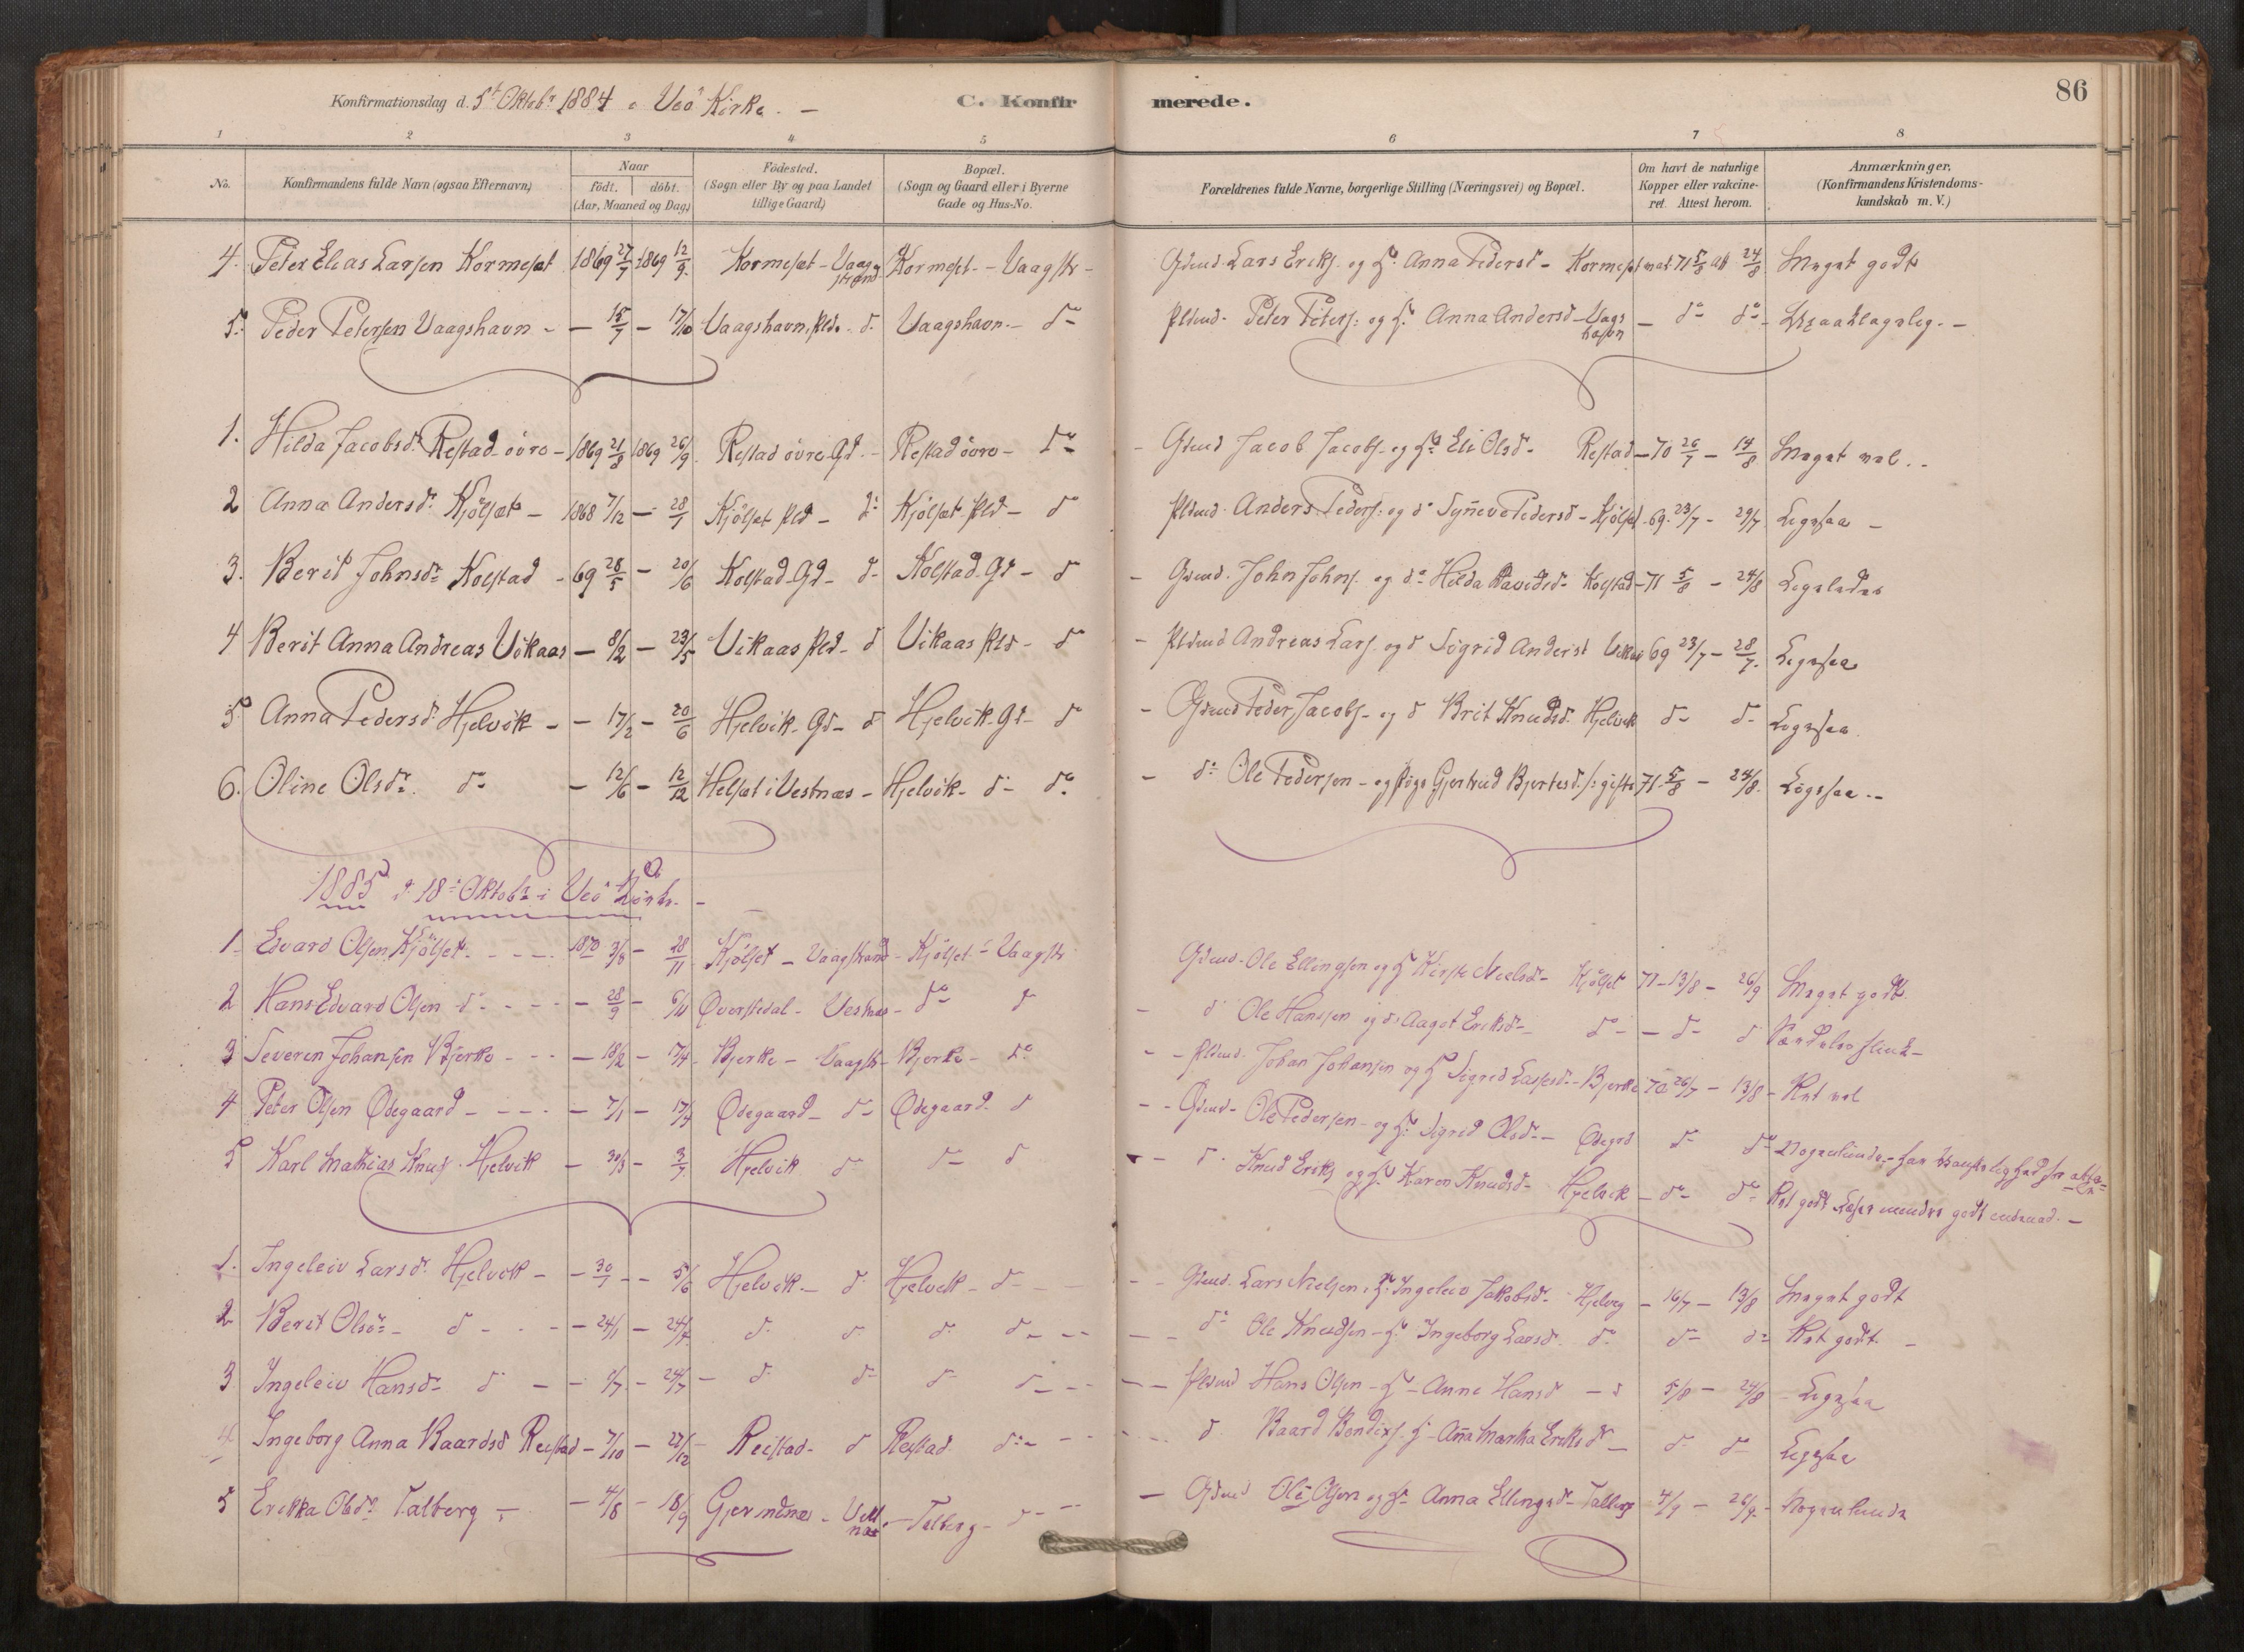 Konfirmationsdag d. 5t Oktobr 1884 i Veö Kirke. —
C. Konfirmerede.
86
1 2 3 4 5 6 7 8
No.
Konfirmandens fulde Navn (ogsaa Efternavn)
Naar
födt. döbt.
(Aar, Maaned og Dag)
Födested.
(Sogn eller By og paa Landet
tillige Gaard)
Bopæl.
(Sogn og Gaard eller i Byerne
Gade og Hus-No.
Forældrenes fulde Navne, borgerlige Stilling (Næringsvei) og Bopæl.
Om havt de naturlige
Kopper eller vakcine-
ret. Attest herom.
Anmærkninger,
(Konfirmandens Kristendoms-
kundskab m. V.)
4. Peter Elias Larsen Kormeset 1869 27/7 1869 12/9 Kormeset - Vaagstrand Kormeset - Vaagstr - Gdmd. Lars Eriks. og H. Anna Pedersd - Kormeset 71 5/8 24/8 Meget godt
5. Peder Petersen Vaagshavn - — 15/7 — 17/10 Vaagshavn, Pld. d. Vaagshavn - do Pldmd. Peter Peters: og H. Anna Andersd - Vagshavn — do do
1. Hilda Jacobsdr Restad övre - 1869 21/8 1869 26/9 Restad övre Gd. - Restad övre - do - Gdmd Jacob Jacobs. og H. Eli Olsd - Restad - 70 26/7 - 14/8 Meget vel.
2 Anna Andersdr Kjölset - 1868 7/12 — 28/1 Kjölset Pld - d: Kjölset Pld - do Pldmd. Anders Peders: og d: Synneve Pedersd - Kjölset 69 23/7 - 29/7 Ligesaa -
3. Berit Johnsdr Kolstad - 69 28/5 — 20/6 Kolstad Gd - d - Kolstad Gd - d - Gdmd. John Johns. og do Hilda Davidsd - Kolstad - 71 5/8 - 24/8 Ligeledes
4 Berit Anna Andreas Vikaas — 8/2 — 23/5 Vikaas Pld - d Vikaas Pld - do - Pldmd Andreas Lars. og d Sigrid Andersd 69 23/7 - 28/7 Ligesaa
5. Anna Pedersd. Hjelvik - — 17/2 — 20/6 Hjelvik Gd - d Hjelvik Gd - do - Gdmd Peder Jacobs. og d Brit Knudsd. Hjelvik d - d - Ligesaa.
6. Oline Olsdr do — 12/6 — 12/12 Helset i Vestnæs - Hjelvik - d - do - do Ole Pedersen - og Pige Gjertrud Bjertesd. 71 5/8 - 24/8 Ligesaa. -
1885 d. 18de Oktobr i Veö Kirke. -
1 Edvard Olsen Kjölset - - - 1870 3/8 — 28/11 Kjölset - Vaagstrand - Kjölset - Vaagstr Gdmd. Ole Ellingsen og H Kirsti Nielsd - Kjölset 71 - 13/8 - 26/9 Meget godt.
2 Hans Edvard Olsen d - - - - 28/9 — 6/11 Överstedal - Vestnæs - do d - d Ole Hanssen og d. Aagot Eriksd - do - - d - d
3 Severin Johansen Bjerke - - - 18/2 — 17/4 Bjerke - Vaagstr - Bjerke - do - - Pldmd. Johan Johansen og H Sigrid Lassesd - Bjerke 70 26/7 - 13/8 - Ret vel
4 Peter Olsen Ödegaard - - - 7/1 — 17/4 Ödegaard - d - Ödegaard - d - - Gdmd - Ole Pedersen - og H. Sigrid Olsd - Ödegrd d - do -
5 Karl Mathias Knuds. Hjelvik — 30/3 — 3/7 Hjelvik d d - d - - d. Knud Eriks. og H. Karen Knudsd - Hjelvik - do - do Ret godt
1. Ingeleiv Larsdr Hjelvik - - 30/1 - - 5/6 Hjelvik - d. Hjelvik - d - - - - Gdmd. Lars Nielsen, H. Ingeleiv Jakobsd - Hjelvig - 16/7 - 13/8 Meget godt
2 Berit Olsdr - d - - - - 24/1 - 24/7 d. d. d. d - - - - - do Ole Knudsen - H. Ingeborg Larsd. d. d - d - Ret godt. -
3 Ingeleiv Hansd - d - - 2/7 - 24/7 - d. d - d - d - - - - - Pldmd Hans Olsen - H - Anne Hansd - d 5/8 - 24/8 Ligesaa
4 Ingeborg Anna Baardsd Reistad - 7/10 - 27/12 - Reistad - d Reistad d: - - - - - d Baard Bendixs. H - Anna Martha Eriksdr - d d - Ligesaa
5 Erikka Olsdr Talberg - - 4/8 - 18/9 Gjermdnes - Vestnæs - Talberg - d - - - - Gdmd Ole Olsen og H - Anna Ellingsd - Talberg 4/9 - 26/9 -